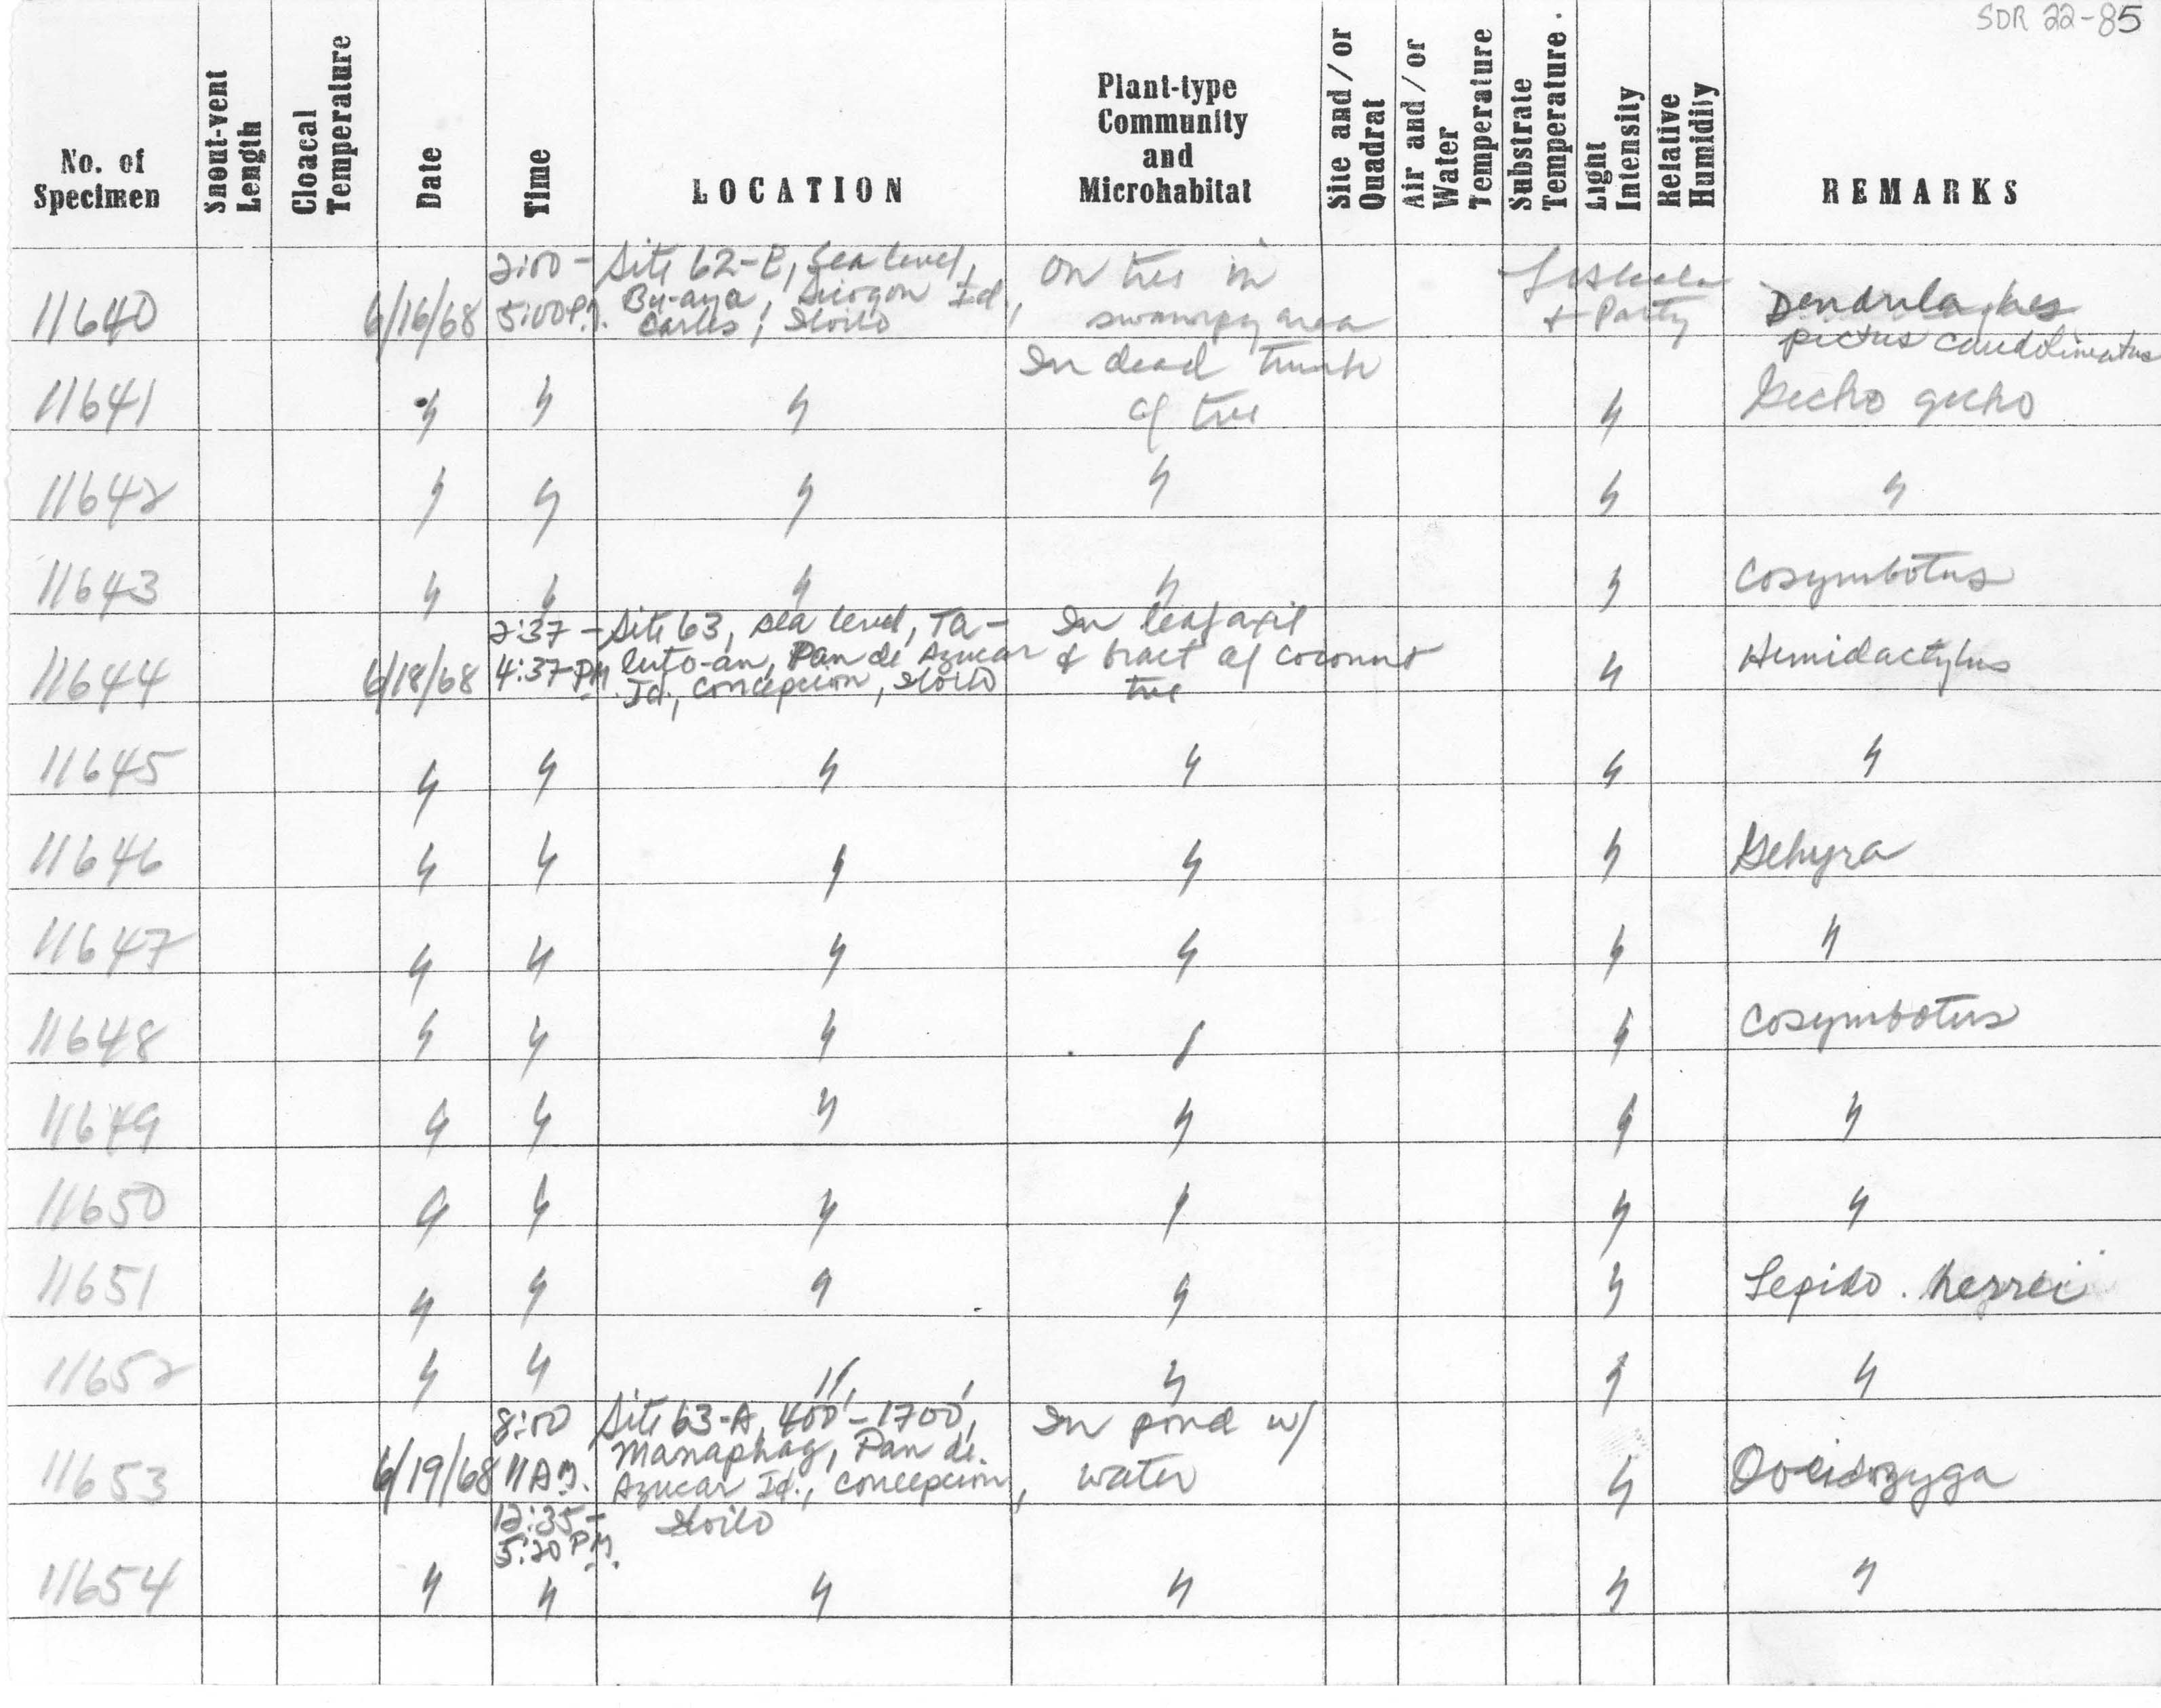 SDR 22-85
No. of Specimen
Snout-vent Length
Cloacal Temperature
Date
Time
LOCATION
Plant-type Community and Microhabitat
Site and / or Quadrat
Air and / or Water Temperature
Substrate Temperature.
Light Intensity
Relative Humidity
REMARKS
11640 6/16/68 2:00 - 5:00 P.M. Site 62-B, Sea level, Bu-aya, Sicogon Id., Carles, Iloilo On tree in swampy area & Party Dendrelaphes pictus caudolineatus
11641 " " " In dead trunk of tree " Gecko gecko
11642 " " " " " "
11643 " " " " " Cosymbotus
11644 6/18/68 2:37 - 4:37 PM. Site 63, sea level, Ta-luto-an, Pan de Azucar Id., Concepcion, Iloilo In leaf axil & bract of coconut tree " Hemidactylus
11645 " " " " " "
11646 " " " " " Gehyra
11647 " " " " " "
11648 " " " " " Cosymbotus
11649 " " " " " "
11650 " " " " " "
11651 " " " " " Lepido. herrei
11652 " " " " " "
11653 6/19/68 8:00 11 AM. 12:35 - 5:20 PM. Site 63-A, 400' - 1700', Manaphag, Pan de Azucar Id., Concepcion, Iloilo In pond w/ water " Ooeidozyga
11654 " " " " " "